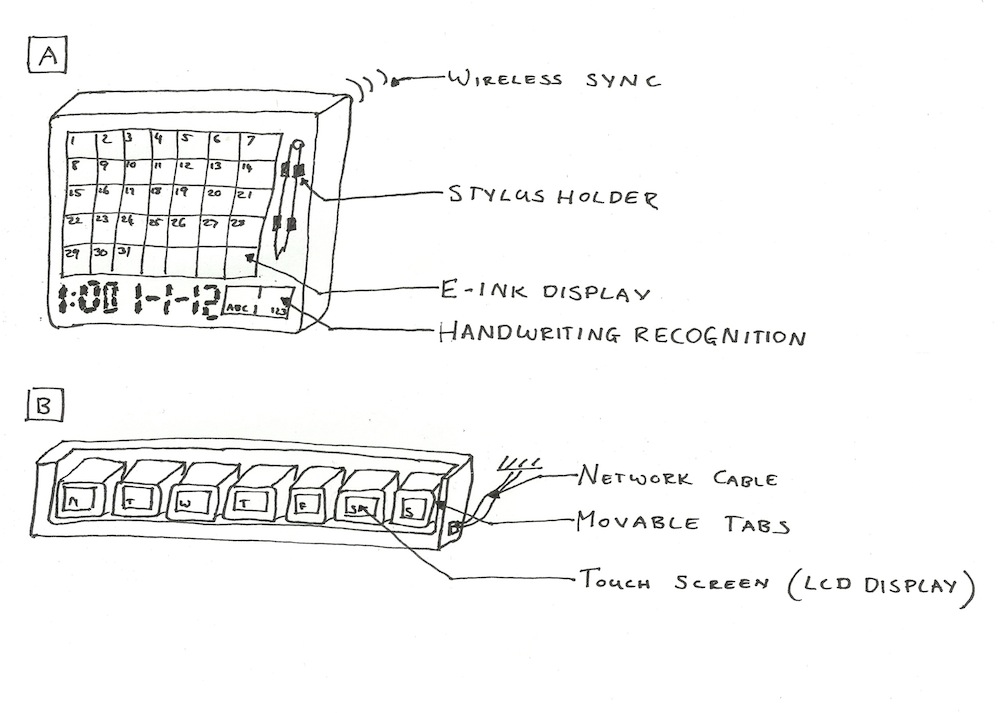 A
WIRELESS SYNC
1 2 3 4 5 6 7
8 9 10 11 12 13 14
15 16 17 18 19 20 21
22 23 24 25 26 27 28
29 30 31
STYLUS HOLDER
E-INK DISPLAY
1:00 1-1-12 ABC 123
HANDWRITING RECOGNITION
B
M T W T F S S
NETWORK CABLE
MOVABLE TABS
TOUCH SCREEN (LCD DISPLAY)